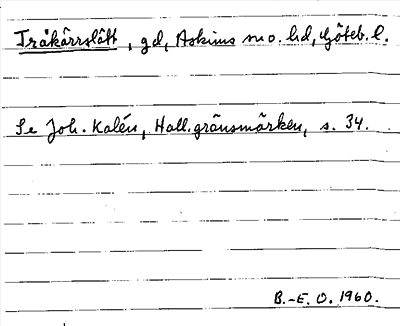 Tråkärrslätt, gd, Askims sn o. hd, Göteb. l.
Se Joh. Kalén, Hall. gränsmärken, s. 34.
B.-E. O. 1960.